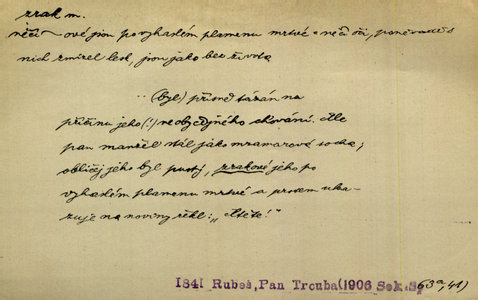 zrak m.
něčí ~ové jsou po vyhaslém plamenu mrtvé = něčí oči, poněvadž s
nich zmizel lesk, jsou jako bez života
... (byl) přísně tázán na
příčinu jeho (!) neobyčejného chování. Ale
pan manžel stál jako mramorová socha;
obličej jeho byl pustý, zrakové jeho po
vyhaslém plamenu mrtvé a prstem uka-
zuje na noviny řekl: „Čtěte!"
1841 Rubeš, Pan Trouba (1906 Seb. Sp. 63a, 41)